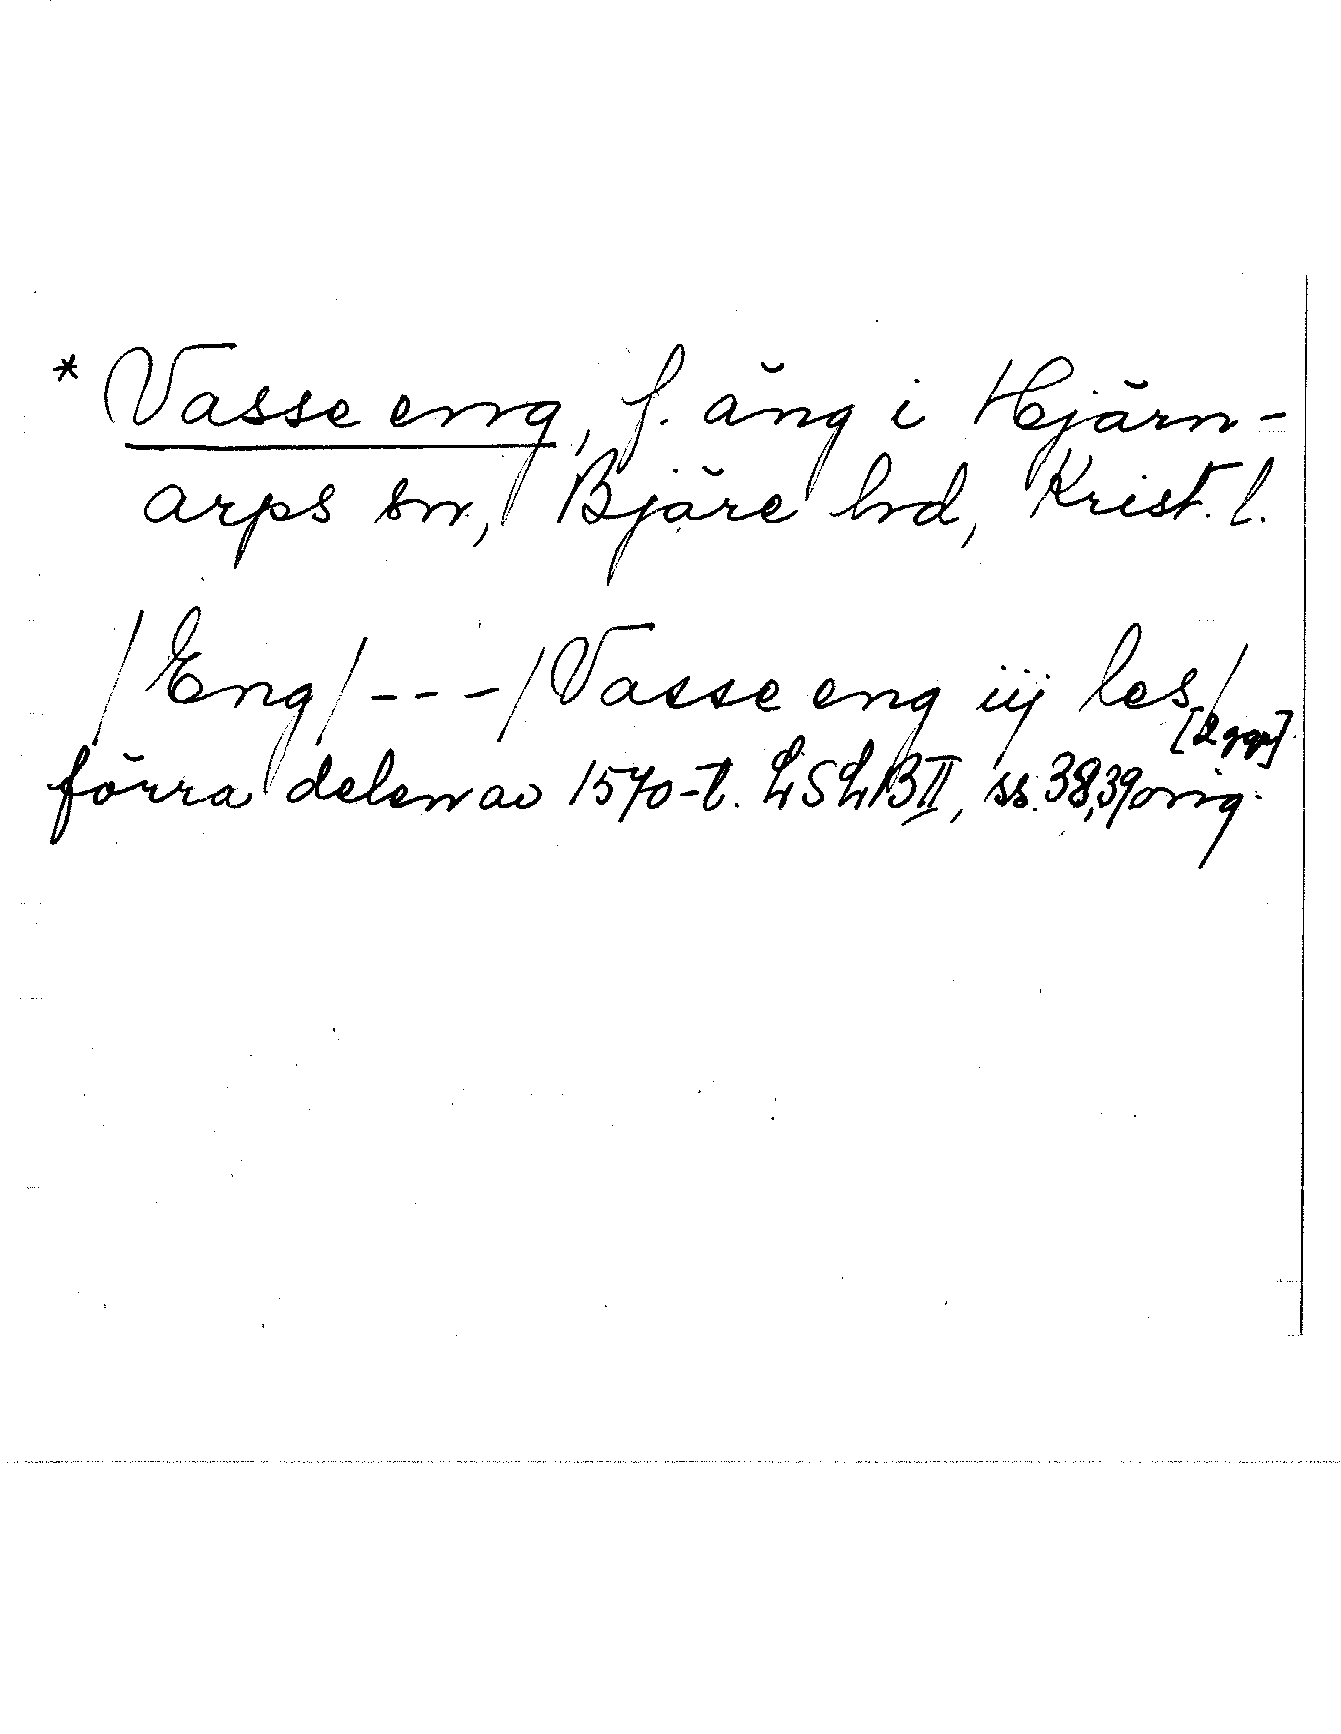 * Vasse eng, f. äng i Hjärn-
arps sn, Bjäre hd, Krist. l.
/Eng/---/Vasse eng iij les/
[2 ggr]
förra delen av 1570-t. LSLB II, ss. 38, 39 orig.